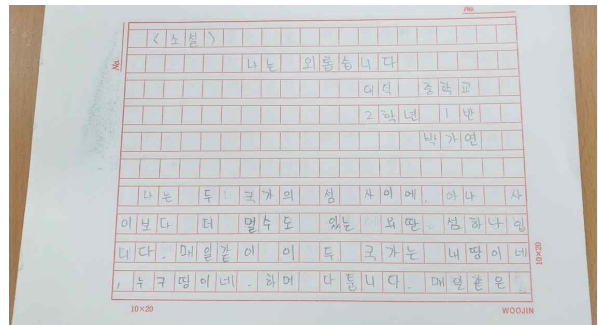 No.
No.
<소설>
나는 외롭습니다
중학교
2학년 1반
박가연
나는 두 국가의 섬 사이에. 아니 사
이보다 더 멀수도 있는 외딴 섬하나입
니다. 매일같이 이 두 국가는 내땅이네
, 누구땅이네. 하며 다툽니다. 매일같은
10×20
10×20
WOOJIN